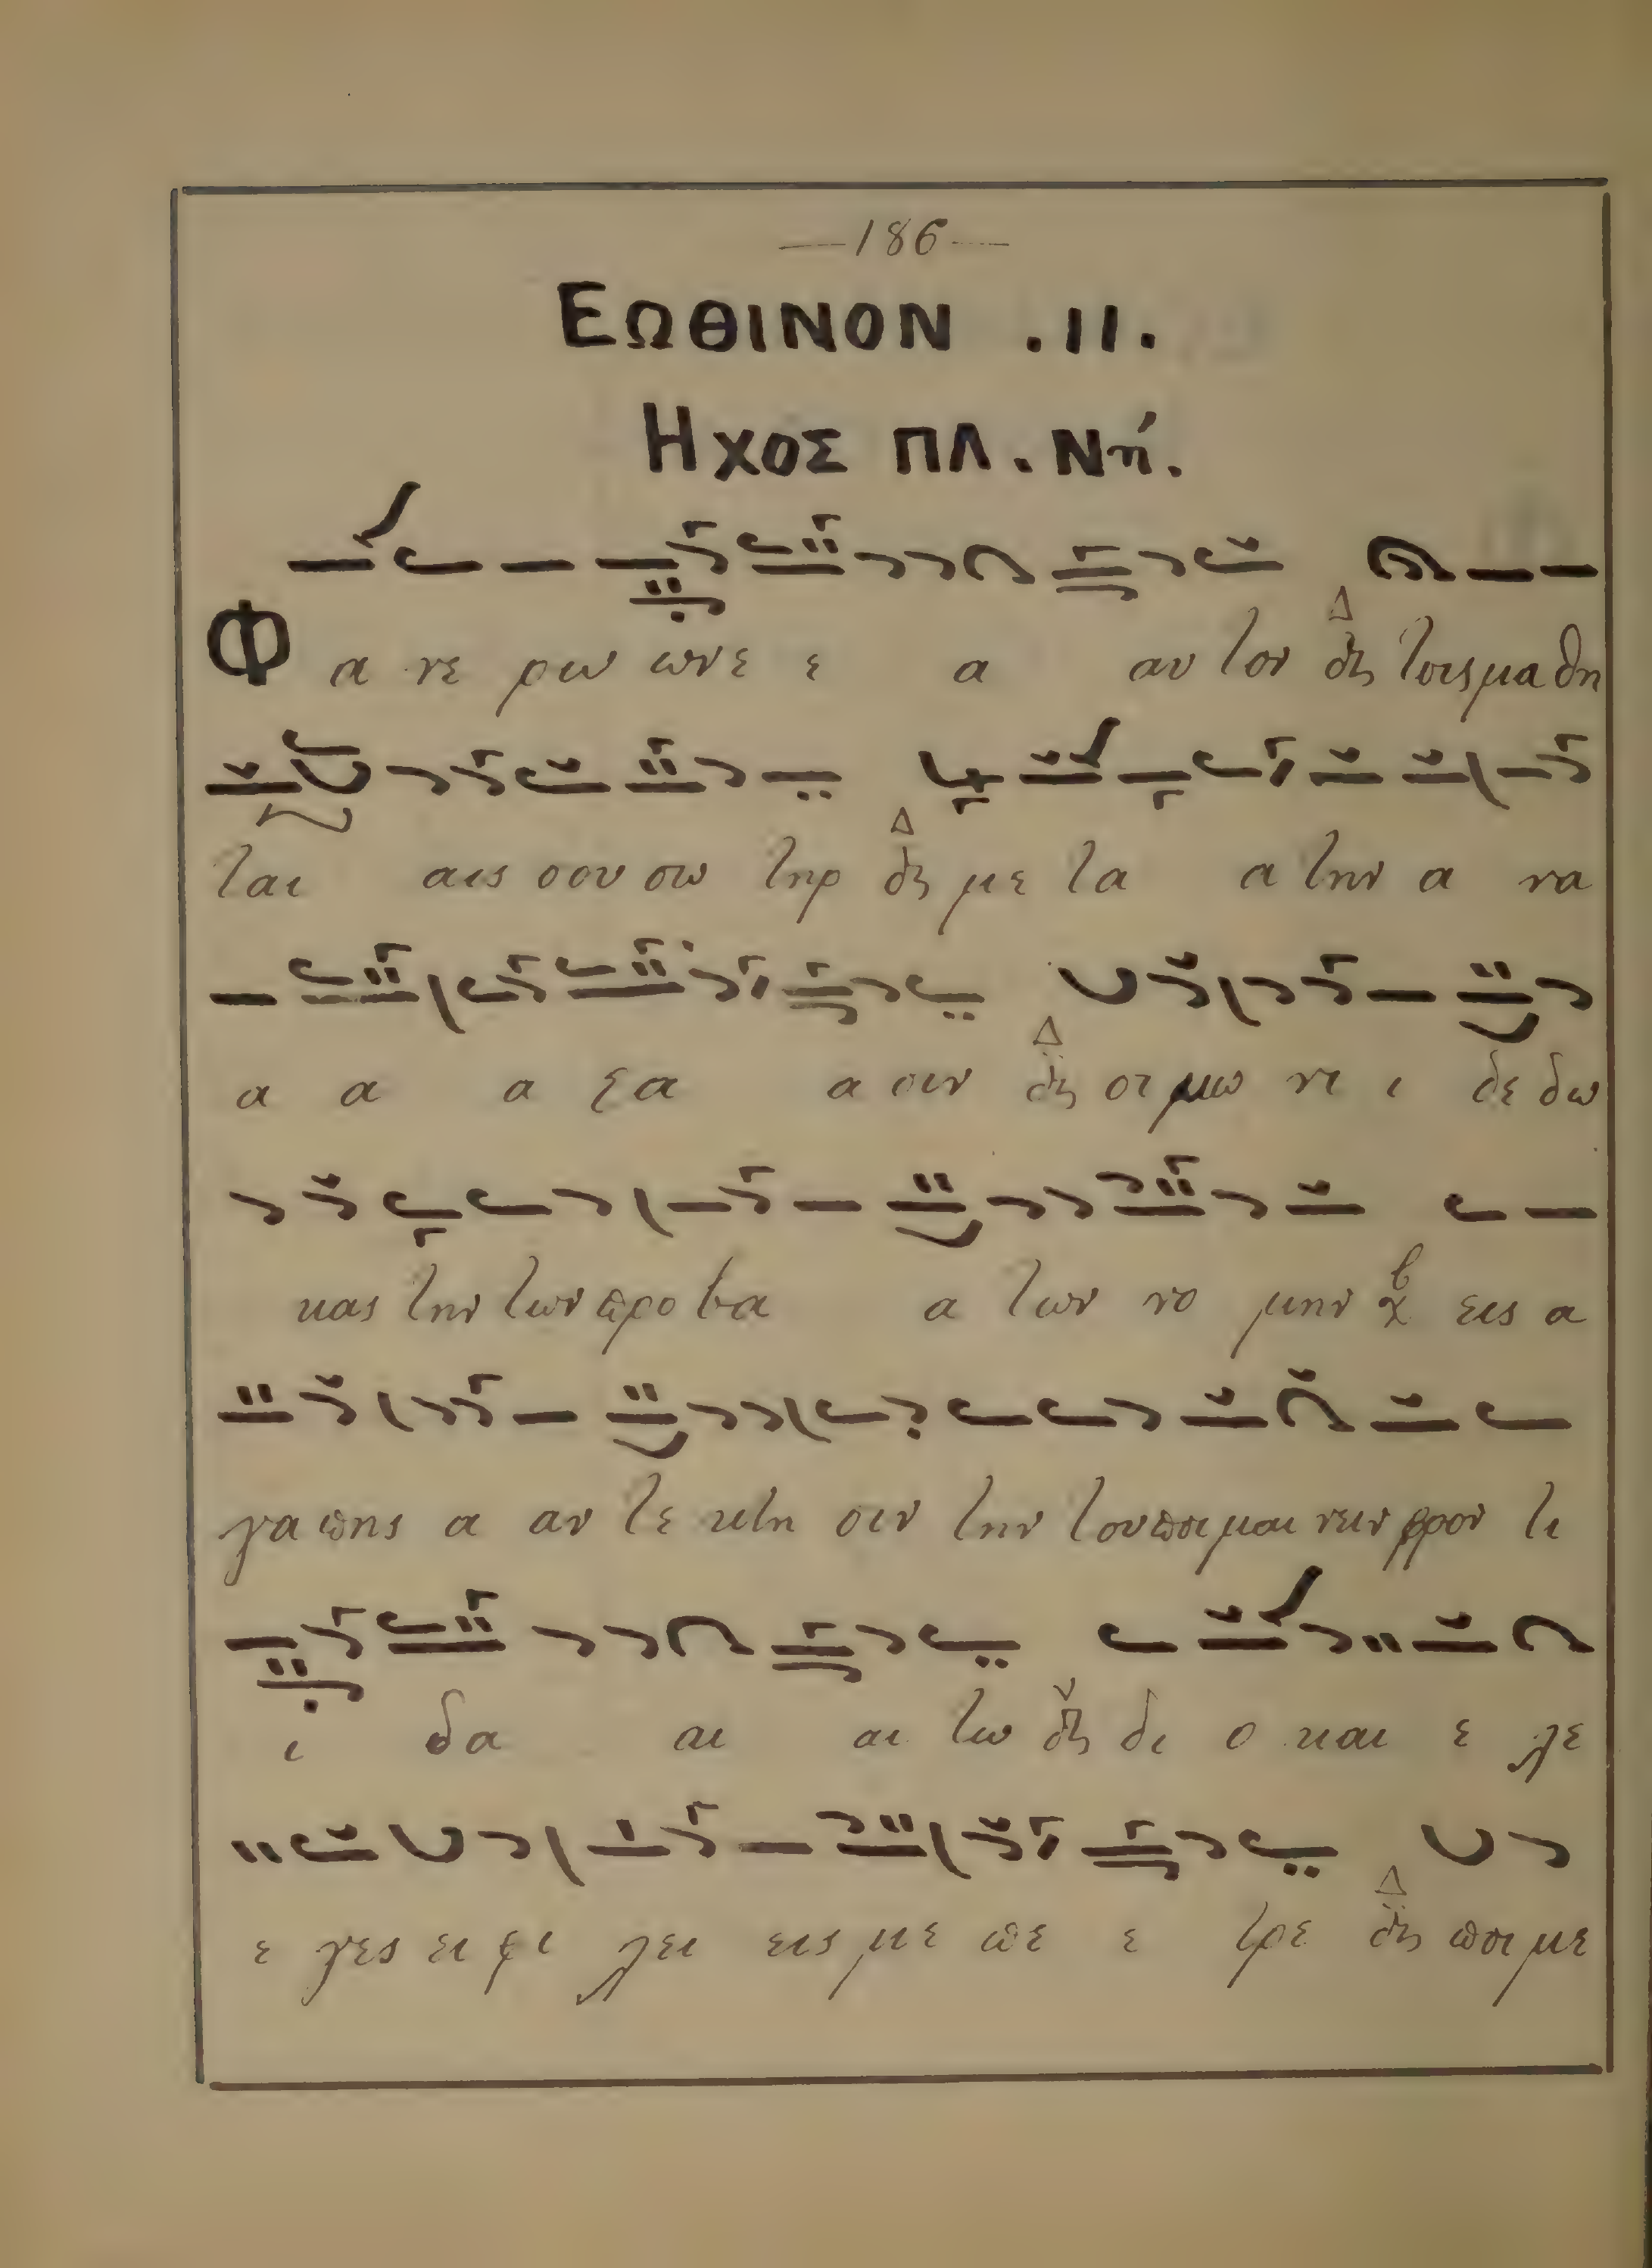 —186—
ΕΩΘΙΝΟΝ .11.
ΗΧΟΣ ΠΛ. Νή.
Φ α νε ρω ωνε ε α αυ τον τοις μα θη
ται αις σου σω τηρ με τα α την α να
α α α ςα α σιν σι μω νι ι δε δω
κας την των προ βα α των νο μην εις α
γα πης α αν τε κτη σιν την του ποι μαι νειν φρον τι
ι δα αι αι τω δι ο και ε λε
ε γες ει φι λει εις με πε ε τρε ποι με